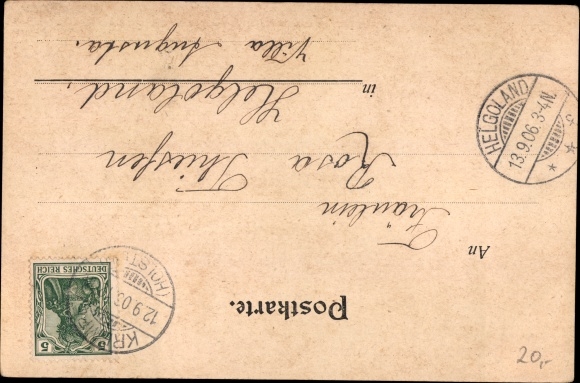 Postkarte.
An
Fräulein
Rosa Thiessen
in Helgoland,
Villa Augusta.
DEUTSCHES REICH
5 5
KR
12.9.03
(HOLST
HELGOLAND
13.9.06.3-4N.
20,-